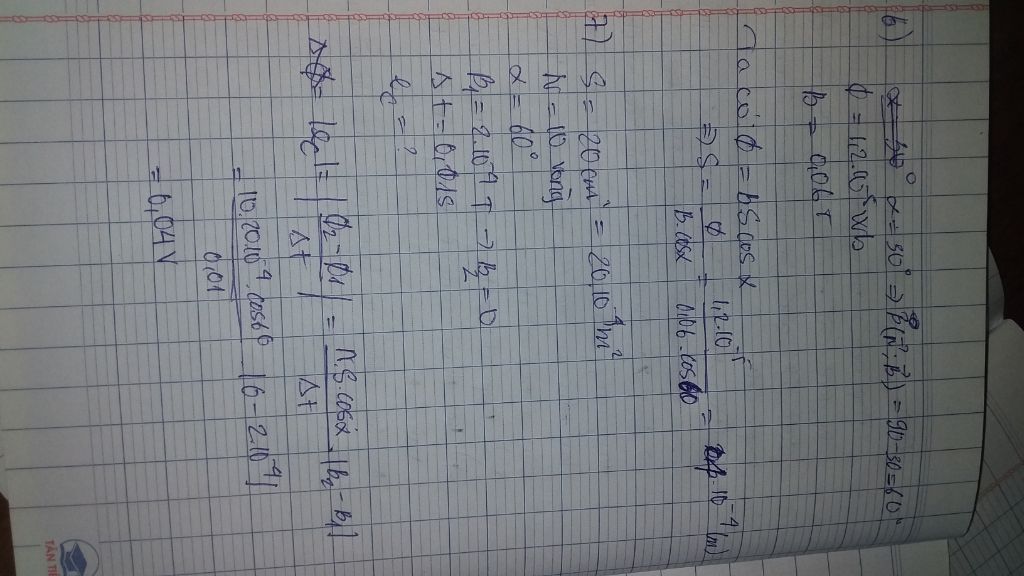 6) α = 30° ⇒ β(n⃗; B⃗) = 90 - 30 = 60°
ϕ = 1,2.10⁻⁵ Wb
B = 0,06 T
Ta có ϕ = BS cos α
⇒ S = ϕ / B.cosα = 1,2.10⁻⁵ / 0,06.cos60 = .10⁻⁴ (m)
7) S = 20 cm² = 20.10⁻⁴ m²
N = 10 vòng
α = 60°
B₁ = 2.10⁻⁴ T → B₂ = 0
Δt = 0,01s
e_c = ?
|e_c| = |ϕ₂ - ϕ₁ / Δt| = N.S.cosα / Δt . |B₂ - B₁|
= 10.20.10⁻⁴.cos60 / 0,01 |0 - 2.10⁻⁴|
= 0,04V
TÂN TI